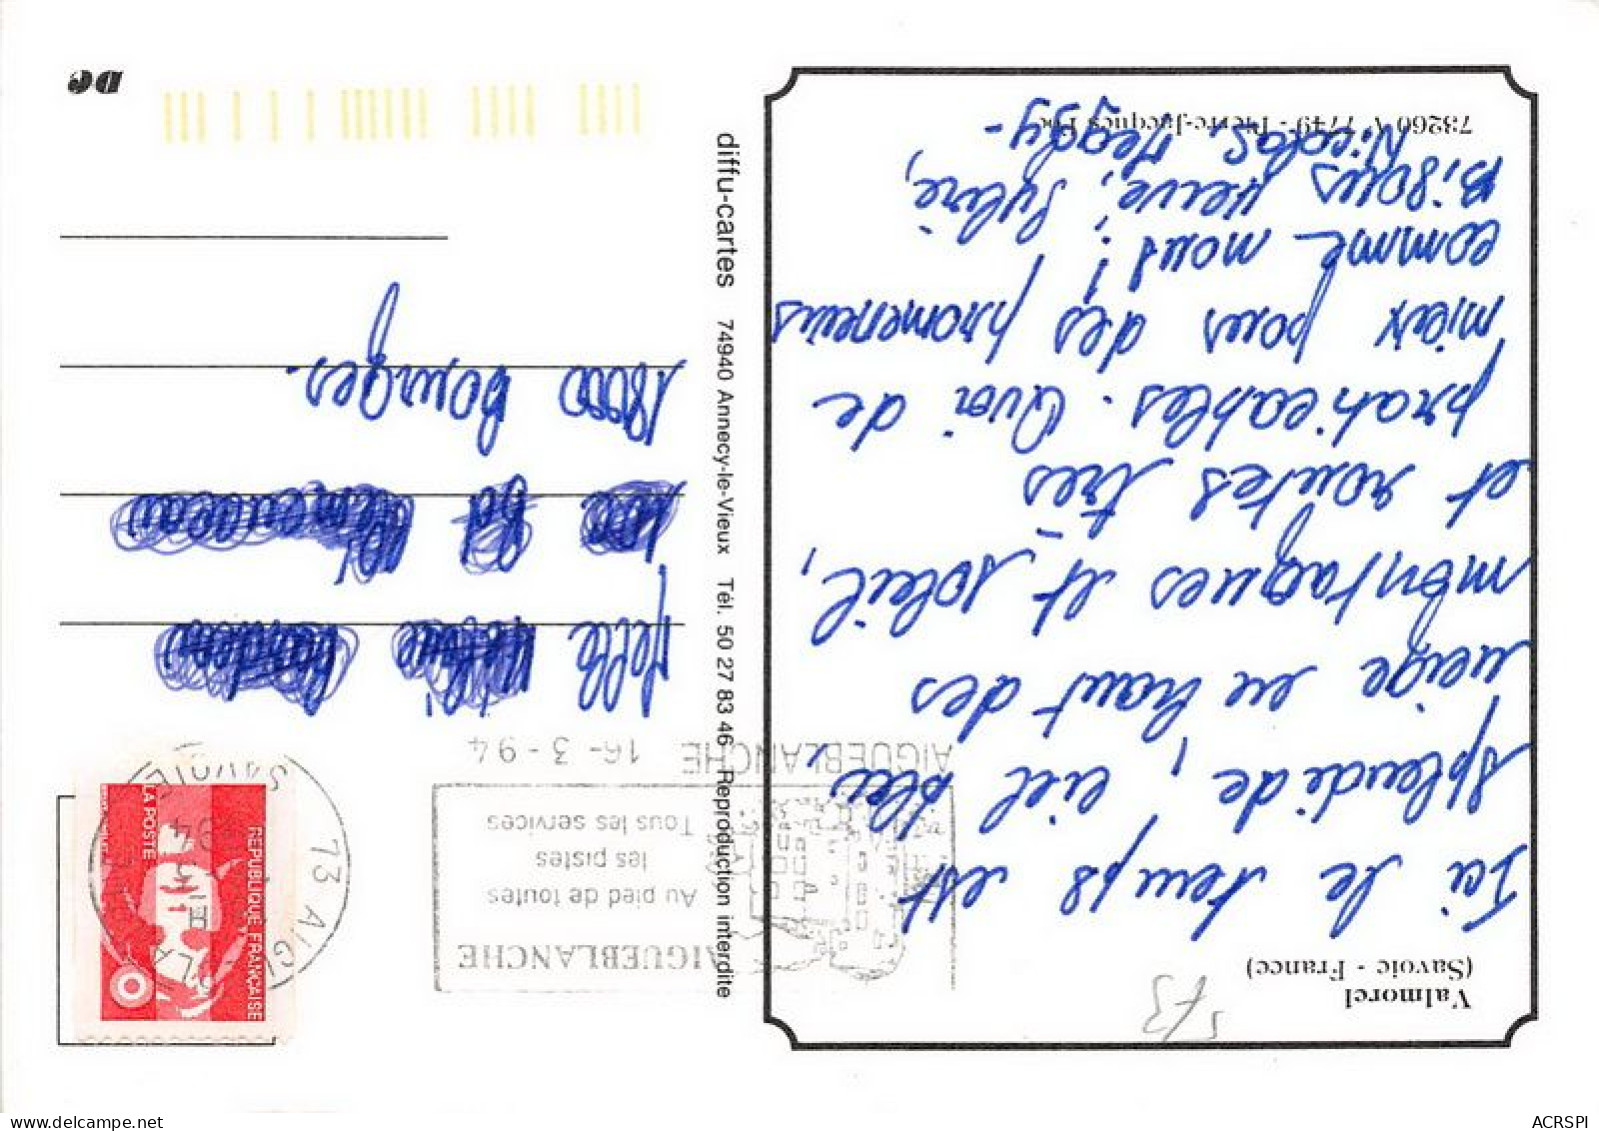 Valmorel
(Savoie - France)
Ici le temps est
splendide, ciel bleu,
neige en haut des
montagnes et soleil,
et routes très
praticables. Quoi de
mieux pour des promeneurs
comme nous!
Bisous Herve, Sylvie,
Nicolas, Magdy-
73260 V 7749 - Pierre-Jacques
73
diffu-cartes 74940 Annecy-le-Vieux Tél. 50 27 83 46 - Reproduction interdite
AIGUEBLANCHE
Au pied de toutes
les pistes
Tous les services
AIGUEBLANCHE 16-3-94
73 AIGUEBLANCHE
SAVOIE
REPUBLIQUE FRANÇAISE
LA POSTE
Melle
18000 Bourges.
DC
delcampe.net
ACRSPI